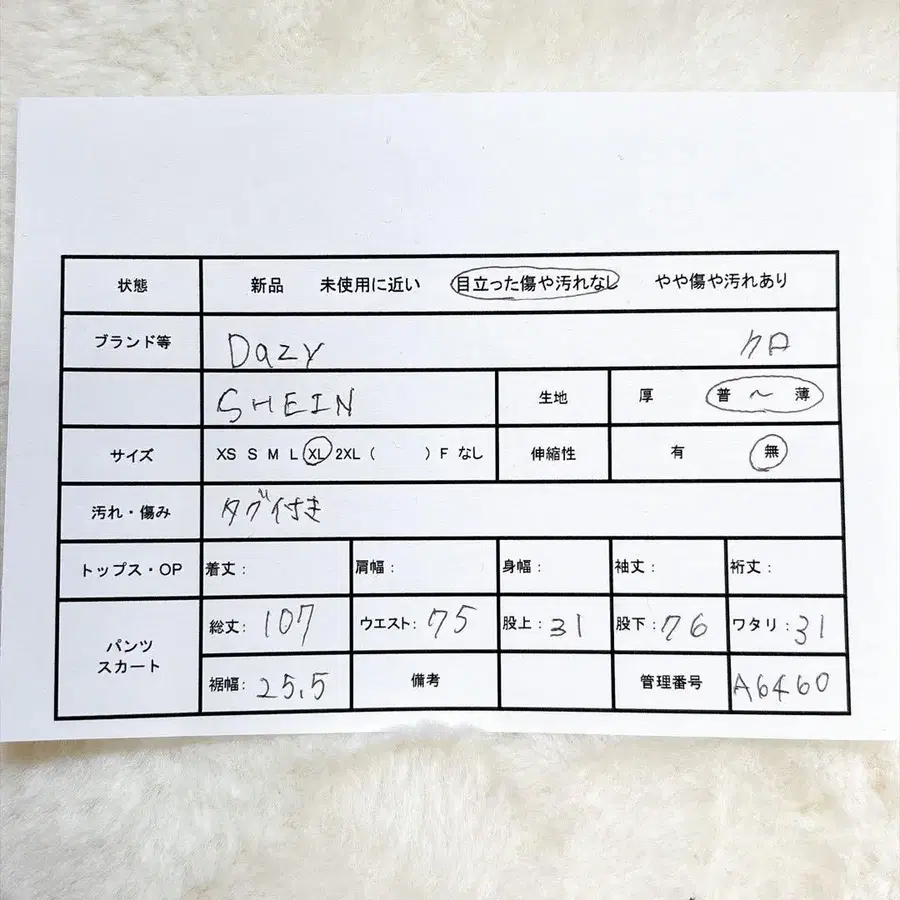 状態 新品 未使用に近い 目立った傷や汚れなし やや傷や汚れあり
ブランド等 Dazy クロ
SHEIN 生地 厚 普 〜 薄
サイズ XS S M L XL 2XL ( ) F なし 伸縮性 有 無
汚れ・傷み タグ付き
トップス・OP 着丈: 肩幅: 身幅: 袖丈: 裄丈:
パンツ スカート 総丈: 107 ウエスト: 75 股上: 31 股下: 76 ワタリ: 31
裾幅: 25.5 備考 管理番号 A6460